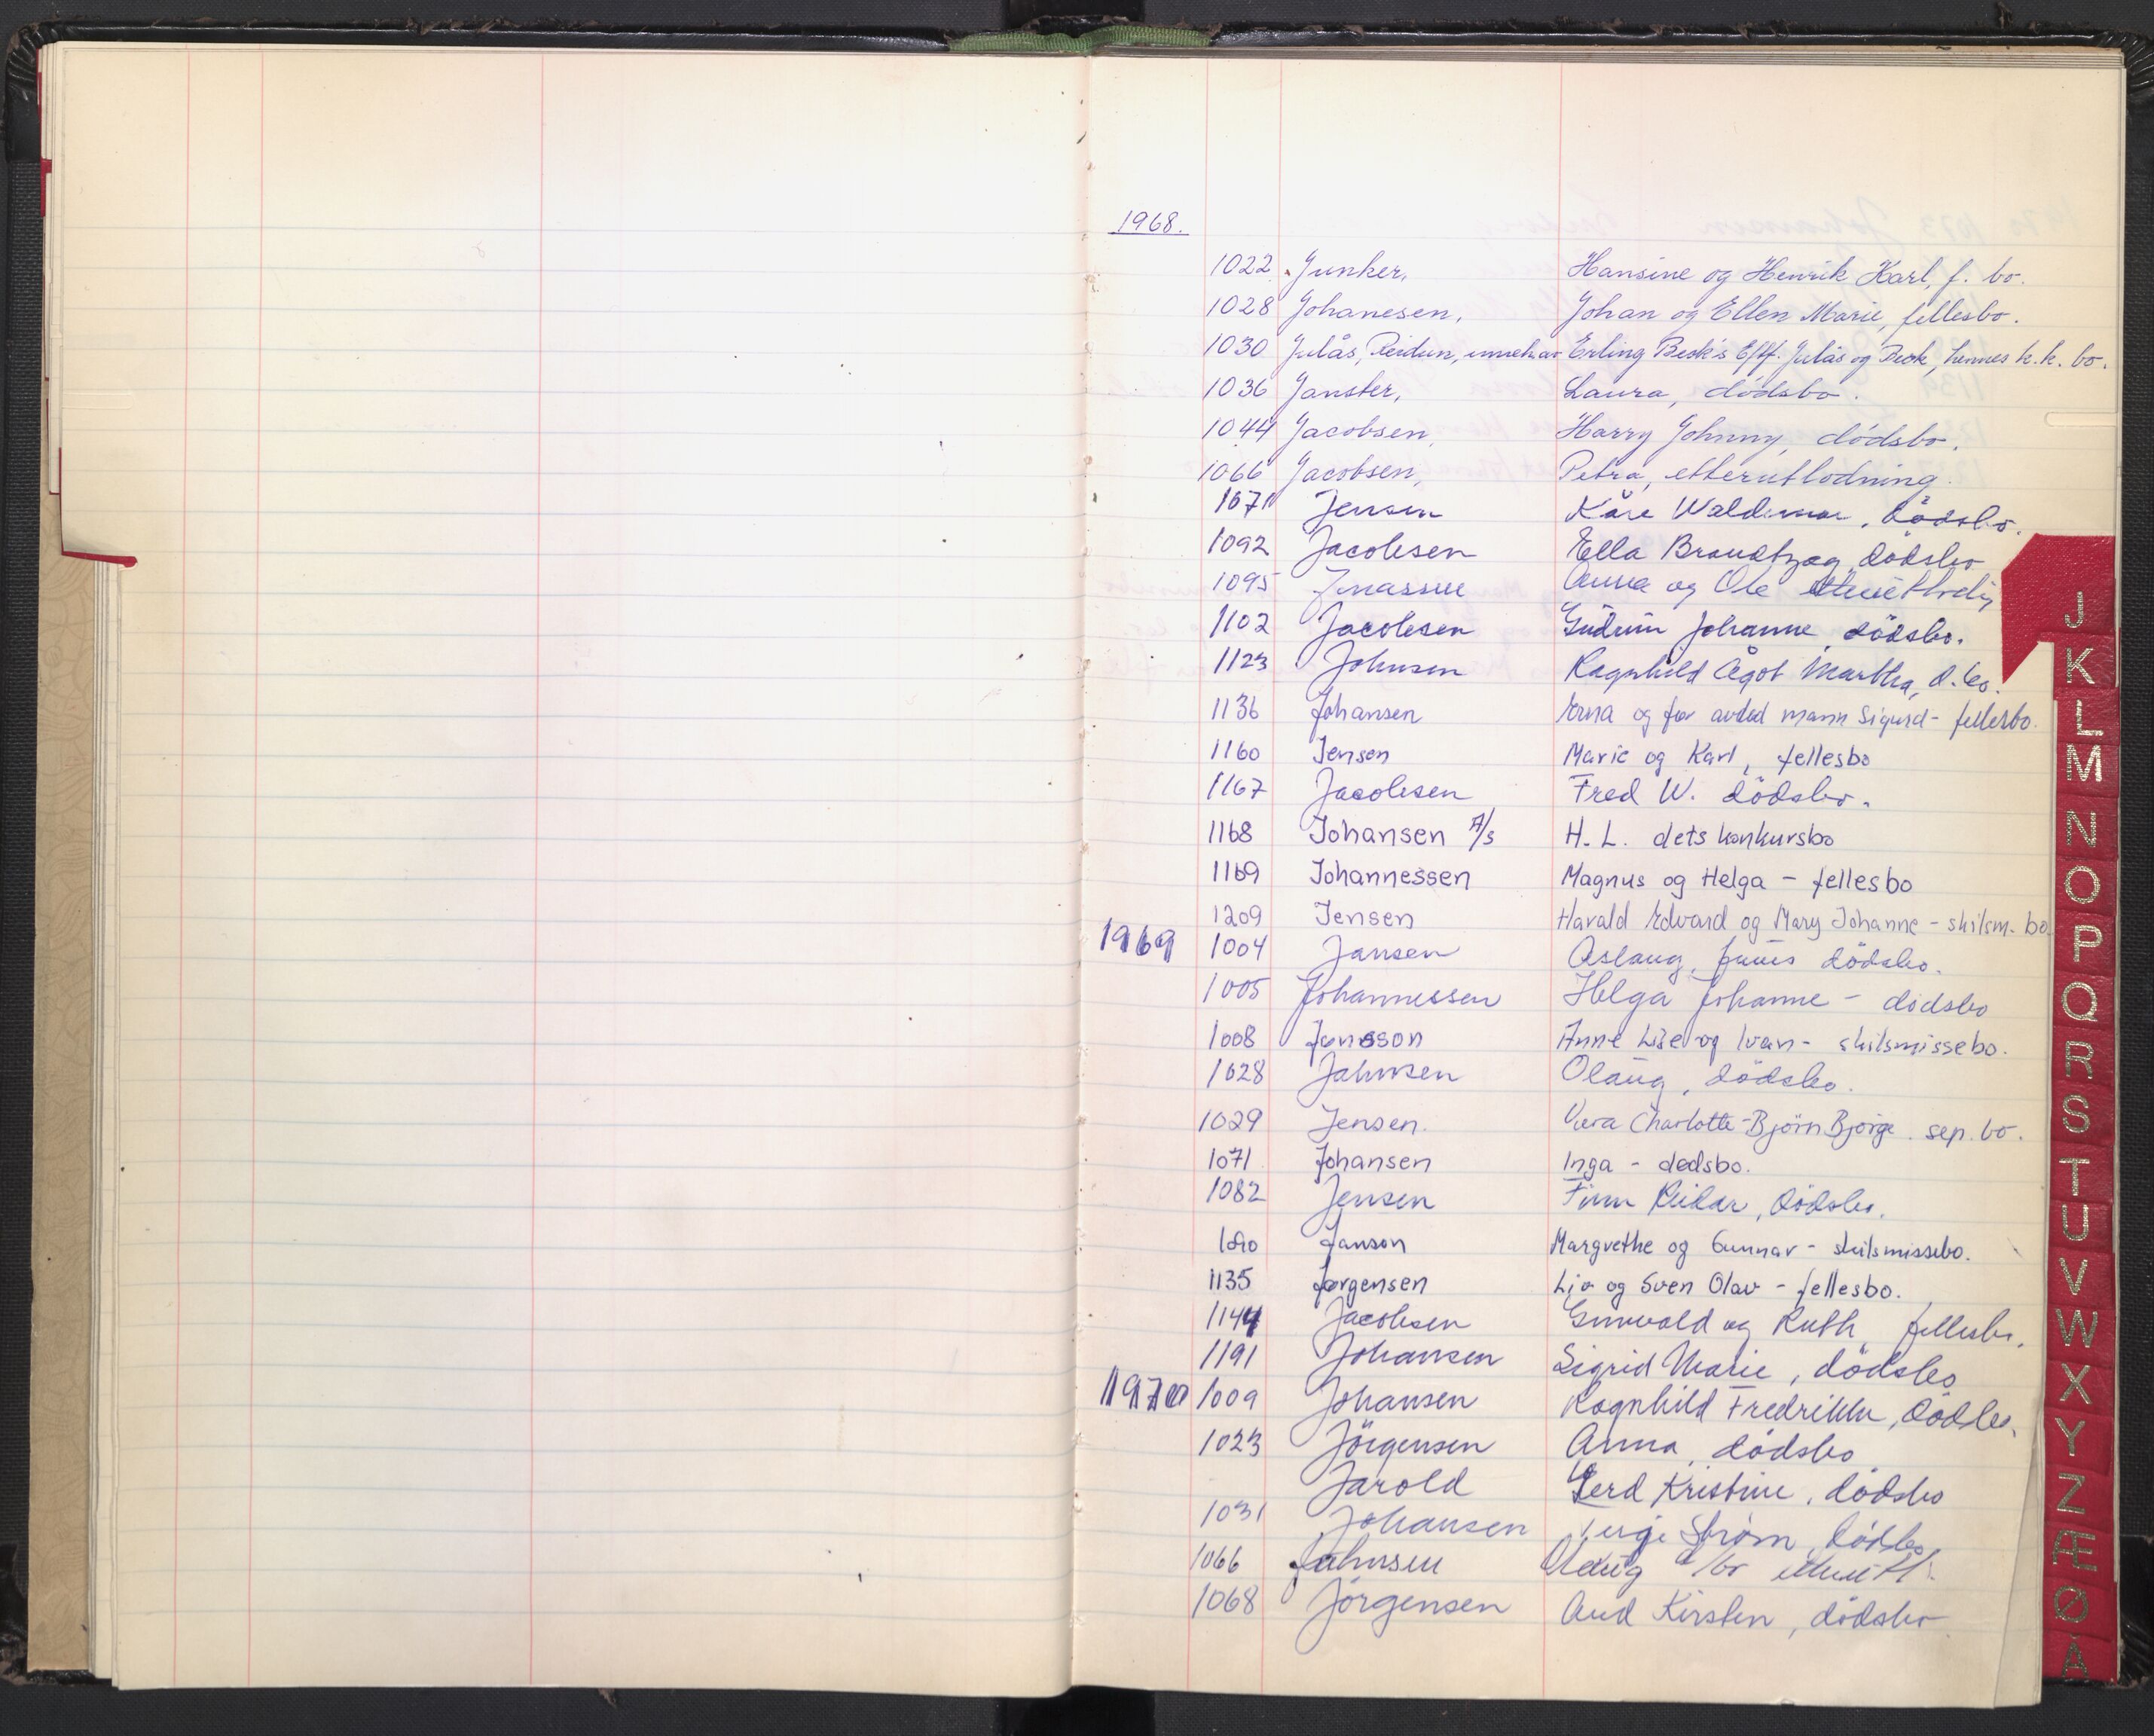 1968.
1022 Junker, Hansine og Henrik Karl, f. bo.
1028 Johanesen, Johan og Ellen Marie, fellesbo.
1030 Julås, Reidun, innehav Erling Besk's Eftf. Julås og Besk, hennes k.k. bo.
1036 Janster, Laura, dödsbo.
1044 Jacobsen, Harry Johnny, dödsbo.
1066 Jacobsen, Petra, etterutlodning.
1071 Jensen Kåre Waldemar, dödsbo.
1092 Jacobsen Ella Brandtzæg, dödsbo
1095 Jonassen Anna og Ole
1102 Jacobsen Gudrun Johanne, dödsbo.
1123 Johnsen Ragnhild Ågot Martha, d.bo.
1136 Johansen Erna og før avdød mann Sigurd - fellesbo.
1160 Jensen Marie og Karl, fellesbo
1167 Jacobsen Fred W. dödsbo.
1168 Johansen A/S H. L. dets konkursbo
1169 Johannessen Magnus og Helga - fellesbo
1209 Jensen Harald Edvard og Mary Johanne - skilsm. bo.
1969 1004 Jansen Aslaug, dödsbo.
1005 Johannessen Helga Johanne - dödsbo
1008 Jonsson Anne Lise og Ivan - skilsmissebo.
1028 Jahnsen Olaug, dödsbo.
1029 Jensen. Vera Charlotte - Björn Bjørge. sep. bo.
1071 Johansen Inga - dødsbo.
1082 Jensen Finn Reidar, dödsbo.
1090 Janson Margrethe og Gunnar - skilsmissebo.
1135 Jørgensen Liv og Sven Olav - fellesbo.
1144 Jacobsen Gunvald og Ruth, fellesbo.
1191 Johansen Sigrid Marie, dödsbo
1970 1009 Johansen Ragnhild Fredrikke, dödsbo.
1023 Jörgensen Anna, dödsbo
Jarold Gerd Kristine, dödsbo
1031 Johansen Strøm, dödsbo
1066 Jahnsen Olaug
1068 Jörgensen Aud Kirsten, dödsbo
J
K
L
M
N
O
P
Q
R
S
T
U
V
W
X
Y
Z
Æ
Ø
Å